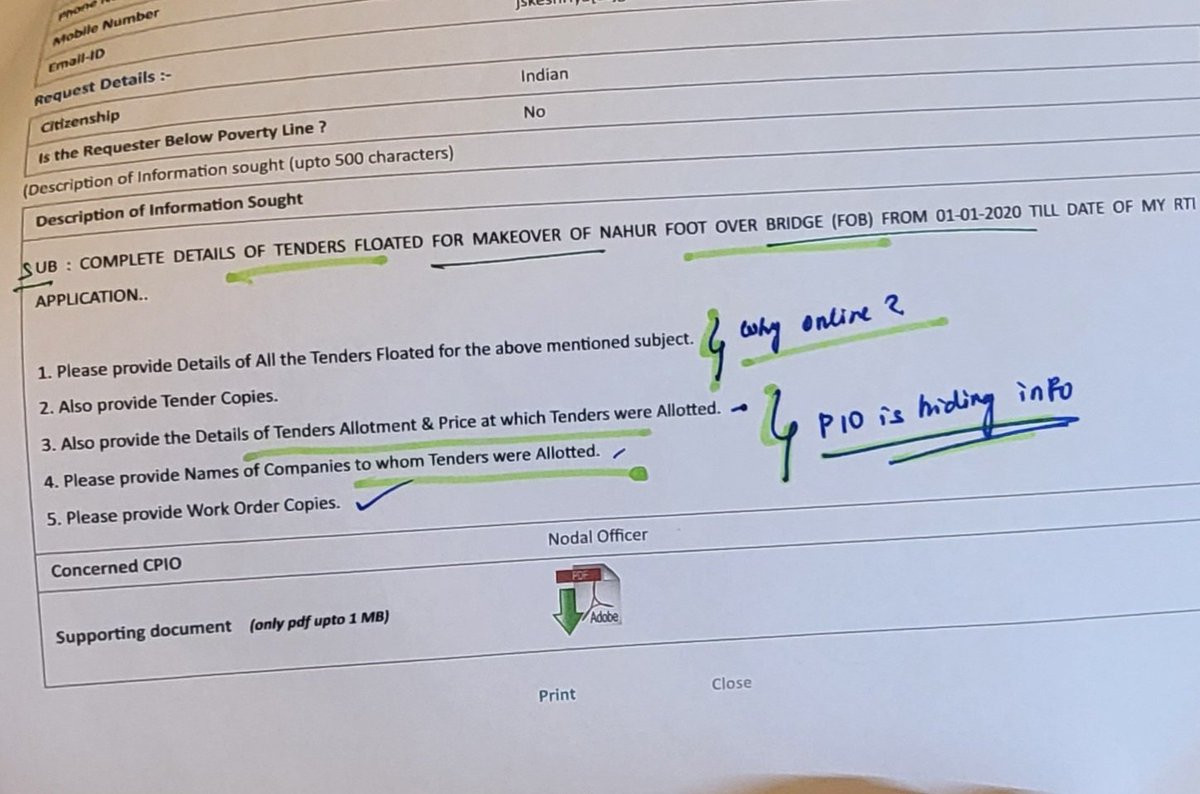 Phone
Mobile Number
Email-ID
Request Details :-
Citizenship Indian
Is the Requester Below Poverty Line ? No
(Description of Information sought (upto 500 characters)
Description of Information Sought
SUB : COMPLETE DETAILS OF TENDERS FLOATED FOR MAKEOVER OF NAHUR FOOT OVER BRIDGE (FOB) FROM 01-01-2020 TILL DATE OF MY RTI
APPLICATION..
1. Please provide Details of All the Tenders Floated for the above mentioned subject. why online ?
2. Also provide Tender Copies.
3. Also provide the Details of Tenders Allotment & Price at which Tenders were Allotted. PIO is hiding info
4. Please provide Names of Companies to whom Tenders were Allotted.
5. Please provide Work Order Copies.
Concerned CPIO Nodal Officer
Supporting document (only pdf upto 1 MB) PDF Adobe
Print Close